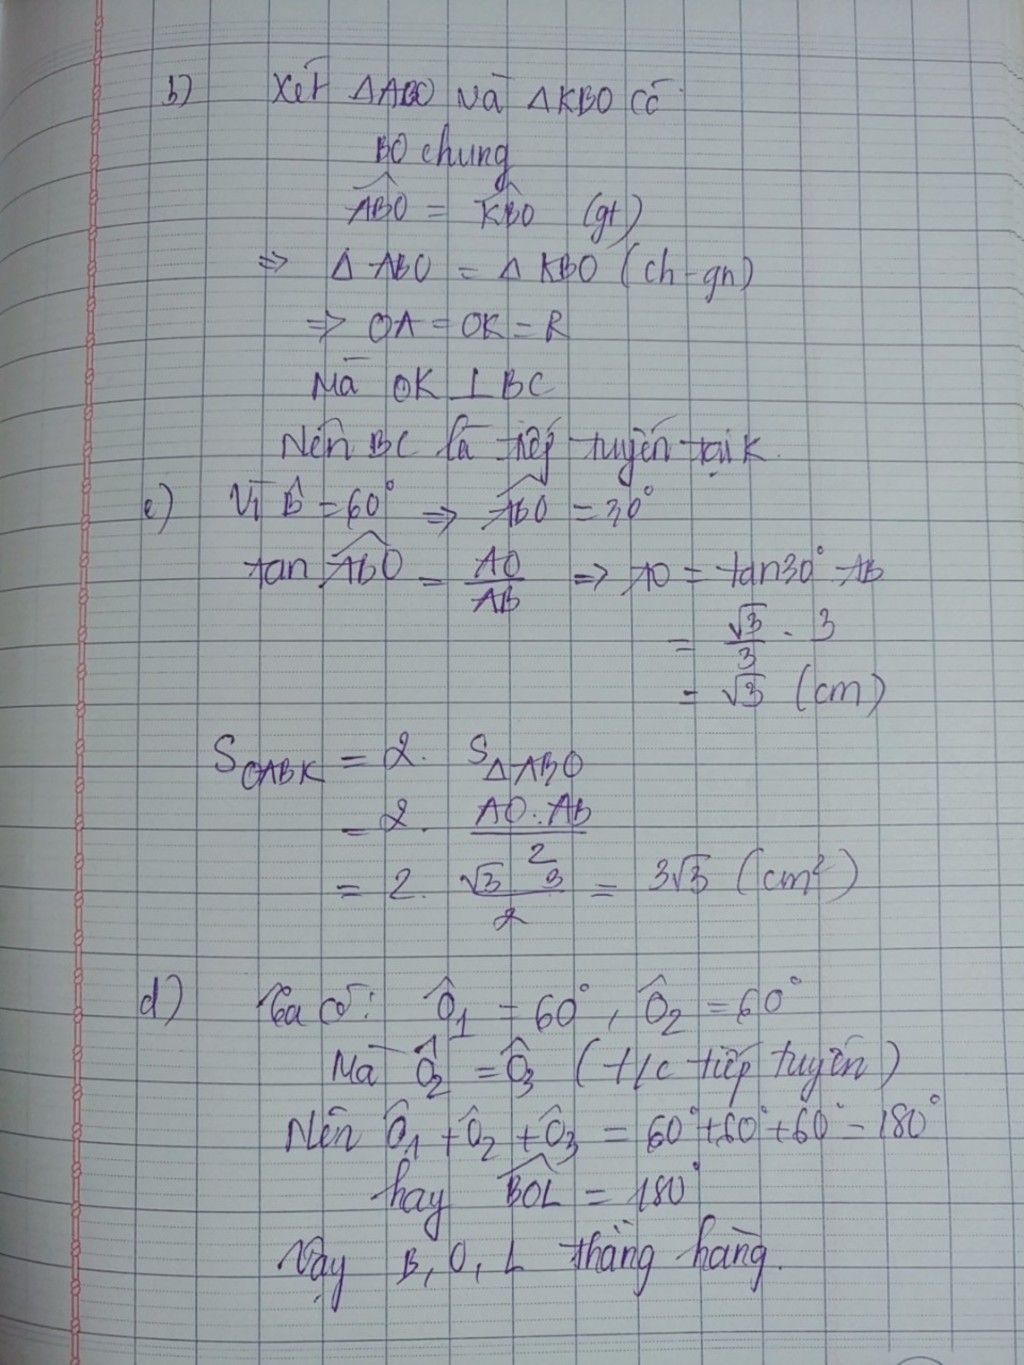 b) Xét ΔABO và ΔKBO có
BO chung
ABO = KBO (gt)
=> ΔABO = ΔKBO (ch-gn)
=> OA = OK = R
Mà OK ⊥ BC
Nên BC là tiếp tuyến tại K.
c) Vì B̂ = 60° => ABO = 30°
tan ABO = AO/AB => AO = tan30° . AB
= √3/3 . 3
= √3 (cm)
S OABK = 2. S ΔABO
= 2. AO.AB/2
= 2. √3 3/2 = 3√3 (cm²)
d) Ta có: Ô1 = 60°, Ô2 = 60°
Mà Ô2 = Ô3 (t/c tiếp tuyến)
Nên Ô1 + Ô2 + Ô3 = 60° + 60° + 60° = 180°
hay BOL = 180°
Vậy B, O, L thẳng hàng.